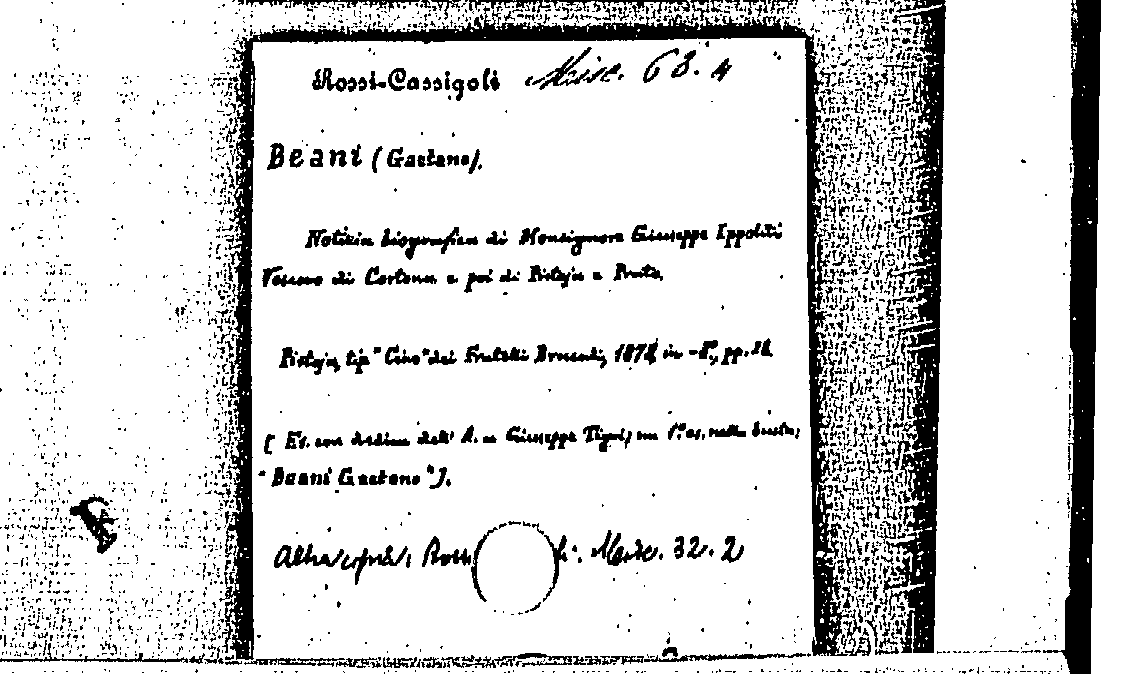 Rossi-Cassigoli Misc. 63.4
Beani (Gaetano).
Notizia biografica di Monsignore Giuseppe Ippoliti
Vescovo di Cortona e poi di Pistoja e Prato.
Pistoja, tip "Cino" dei Fratelli Bracali, 187 in -8°, pp.
[ Es. con dedica dell' A. a Giuseppe Tigri; un 1° es. nella busta:
"Beani Gaetano"].
Altra copia: Ross i. Misc. 32.2